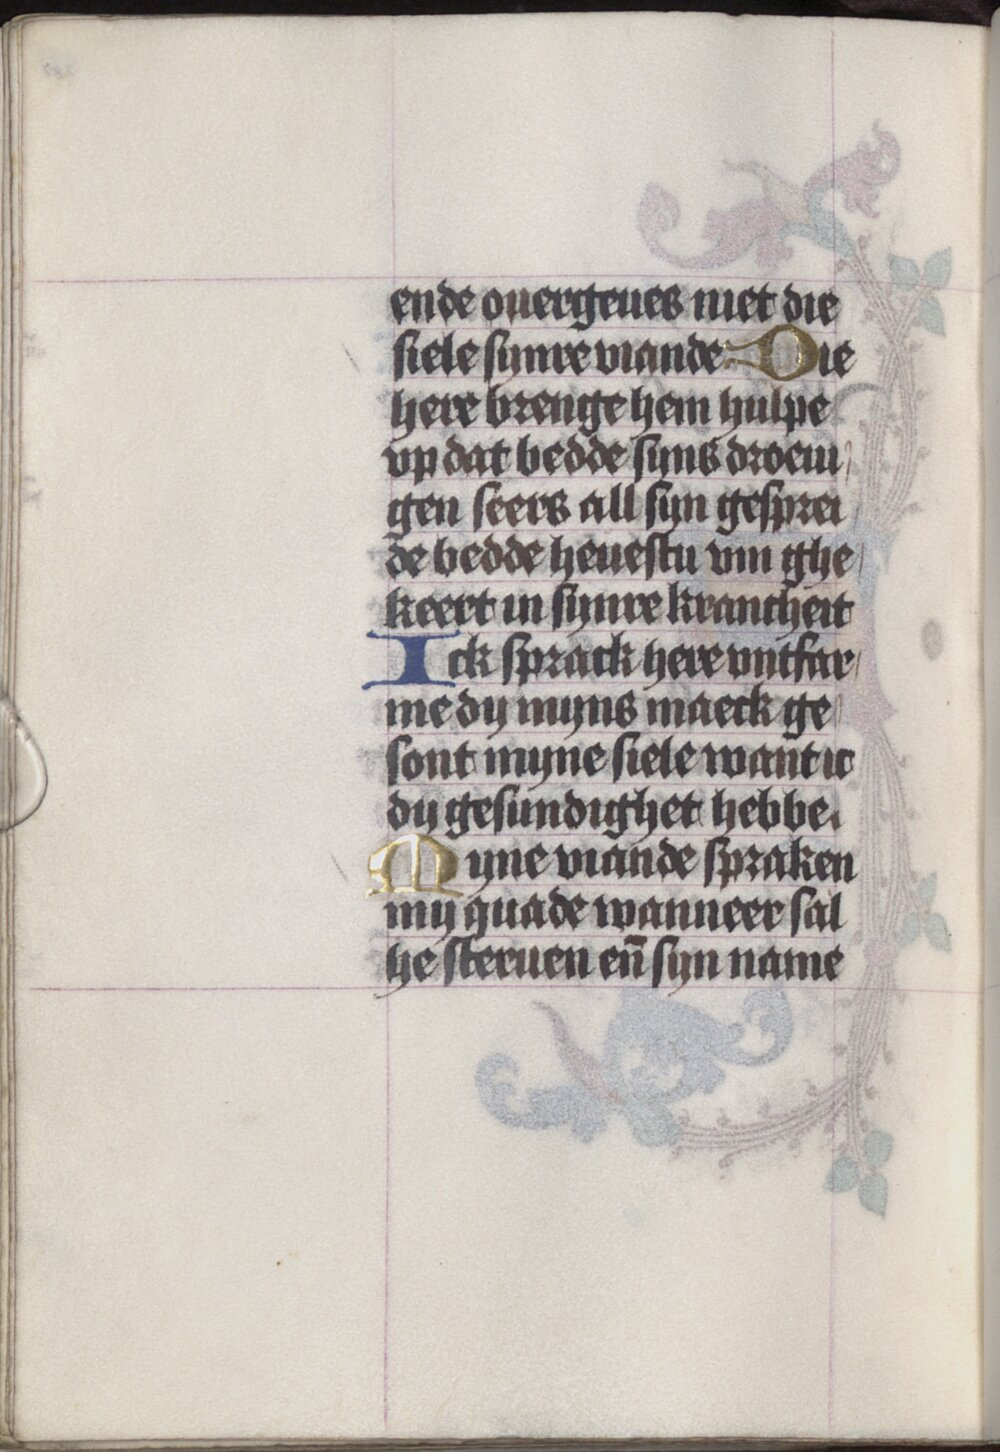 ende ouergeues niet die
siele synre viande Die
here brenge hem hulpe
vp dat bedde syns droeui
gen seers all syn gesprei
de bedde heuestu vm ghe
keert in synre krancheit
Ick sprack here vntfar
me dy myns maeck ge
sont myne siele want ic
dy gesundighet hebbe.
Myne viande spraken
my quade wanneer sal
he steruen en̄ syn name